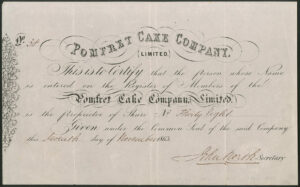 POMFRET CAKE COMPANY.
(LIMITED)
This is to Certify that the person whose Name
is entered on the Register of Members of the
Pomfret Cake Company Limited
is the proprietor of Share No Thirty Eight
Given under the Common Seal of the said Company
this day of November 1863
Secretary